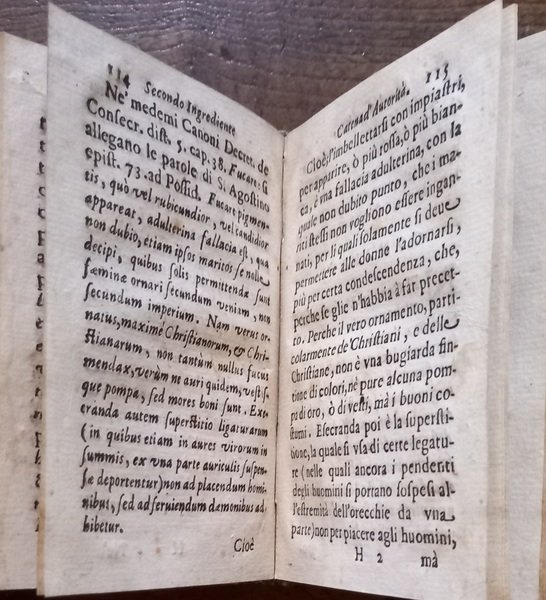 114
Secondo Ingrediente
Ne' medemi Canoni Decret. de
Consecr. dist. 5. cap. 38. Fucare: si
allegano le parole di S. Agostino
epist. 73. ad Possid. Fucare pigmen-
tis, quò vel rubicundior, vel candidior
appareat, adulterina fallacia est, qua
non dubio, etiam ipsos maritos se nolle
decipi, quibus solis permittendæ sunt
fæminæ ornari secundum veniam, non
secundum imperium. Nam verus or-
natus, maximè Christianorum, & Chri-
stianarum, non tantùm nullus fucus
mendax, verùm ne auri quidem, vestisq;
que pompa, sed mores boni sunt. Exe-
cranda autem superstitio ligaturarum
(in quibus etiam in aures virorum in
summis, ex vna parte auriculis suspen-
sæ deportentur) non ad placendum homi-
nibus, sed ad seruiendum dæmonibus ad-
hibetur.
Cioè
Catena d'Autorità. 115
Cioè, l'imbellettarsi con impiastri,
per apparire, ò più rossa, ò più bian-
ca, è vna fallacia adulterina, con la
quale non dubito punto, che i ma-
riti stessi non vogliono essere ingan-
nati, per li quali solamente si deue
permettere alle donne l'adornarsi,
più per certa condescendenza, che,
perche se glie n'habbia à far precet-
to. Perche il vero ornamento, parti-
colarmente de' Christiani, e delle
Christiane, non è vna bugiarda fin-
tione di colori, nè pure alcuna pom-
pa di oro, ò di vesti, mà i buoni co-
stumi. Esecranda poi è la superstî-
tione, la quale si vsa di certe legatu-
re (nelle quali ancora i pendenti
degli huomini si portano sospesi al-
l'estremità dell'orecchie da vna
parte) non per piacere agli huomini,
H 2 mà